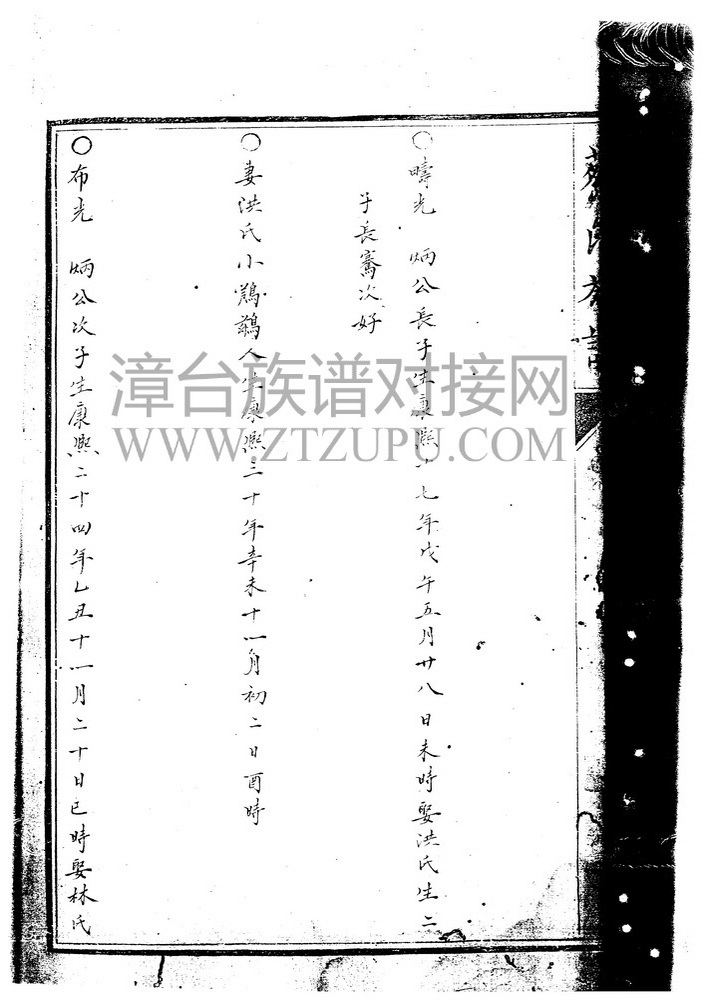 ○疇光　炳公長子生康熙十七年戊午五月廿八日未時娶洪氏生二
子長騫次好
○妻洪氏小鶏鵝人生康熙三十年辛未十一月初二日酉時
○布光　炳公次子生康熙二十四年乙丑十一月二十日巳時娶林氏
漳台族谱对接网
WWW.ZTZUPU.COM